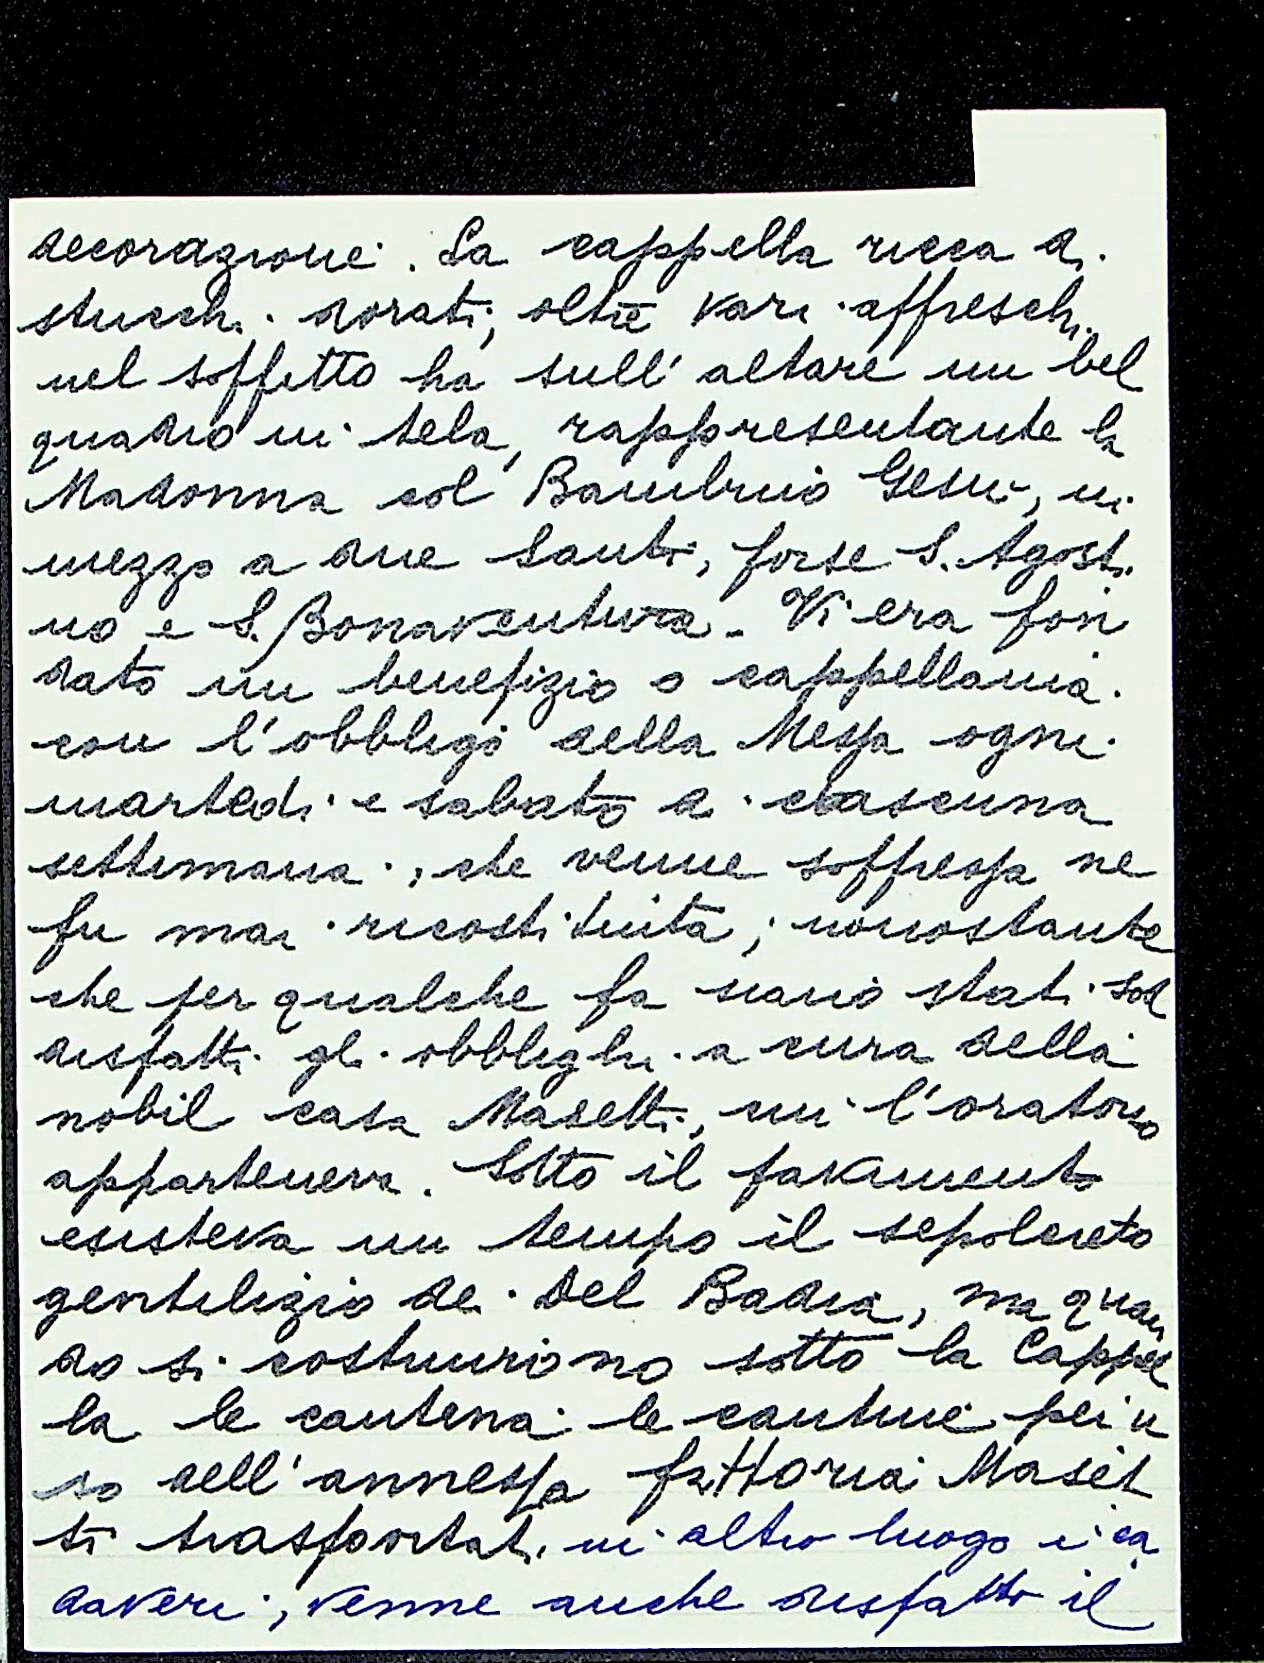 decorazione. La cappella ricca di
stucchi dorati, oltre vari affreschi
nel soffitto ha sull' altare un bel
quadro in tela, rappresentante la
Madonna col Bambino Gesù, in
mezzo a due Santi, forse S. Agosti
no e S. Bonaventura. Vi era fon
dato un benefizio o cappellania
con l'obbligo della Messa ogni
martedi e sabato di ciascuna
settimana, che venne soppressa ne
fu mai ricostituita; nonostante
che per qualche fa siano stati sod
disfatti gli obblighi a cura della
nobil casa Masetti, cui l'oratorio
apparteneva. Sotto il pavimento
esisteva un tempo il sepolcreto
gentilizio dei Del Badia, ma quan
do si costruirono sotto la Cappel
la le cantena le cantine per u
so dell'annessa fattoria Maset
ti trasportati in altro luogo i ca
daveri, venne anche disfatto il